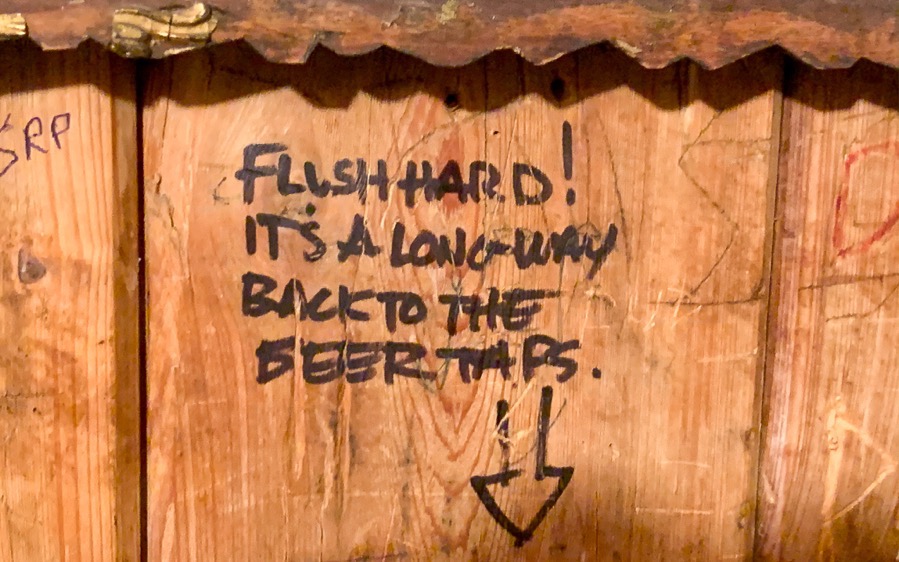 SRP
FLUSH HARD!
IT'S A LONG WAY
BACK TO THE
BEER TAPS.